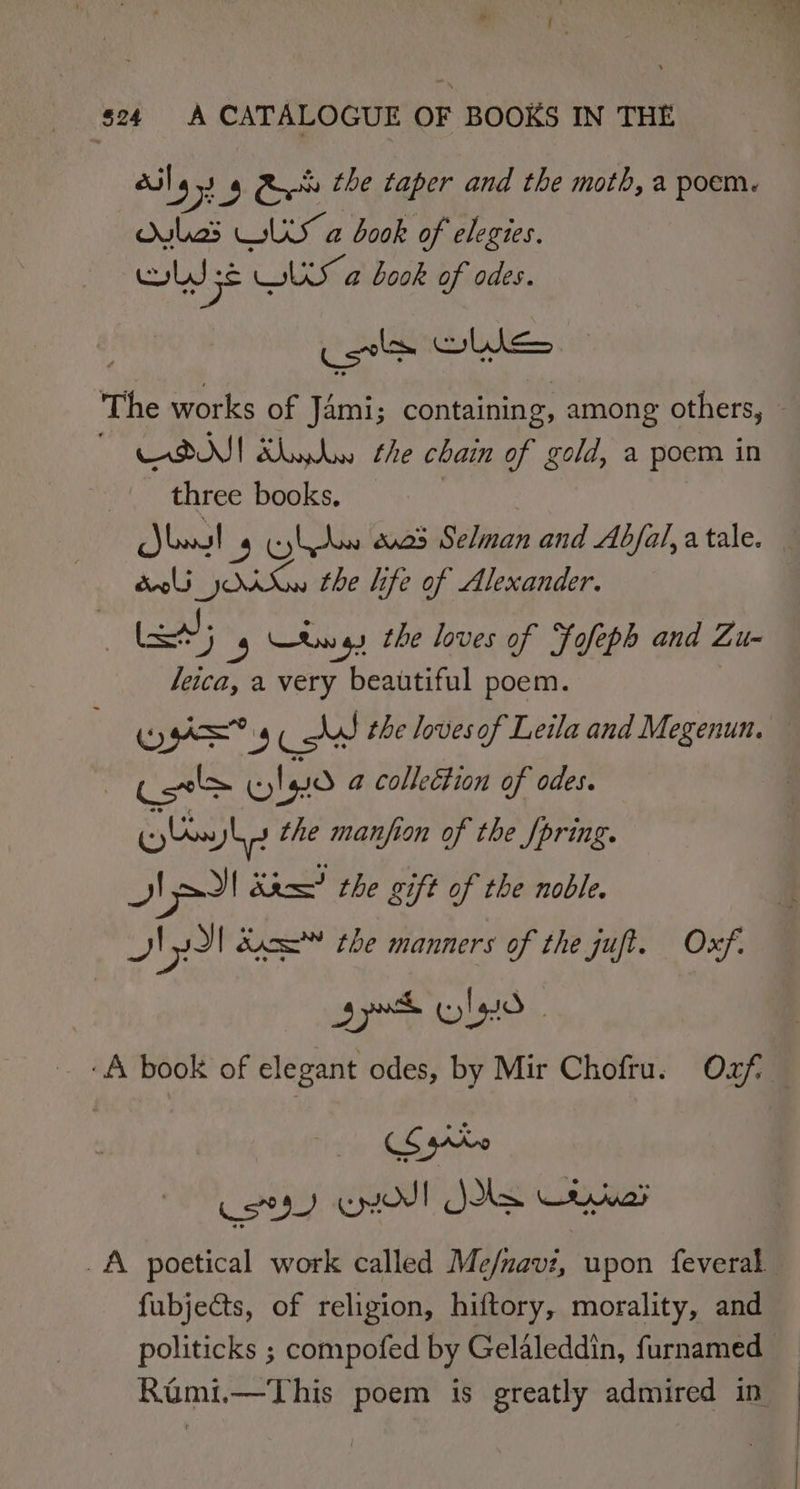 324 A CATALOGUE OF BOOKS IN THE
شمع و پروانه the taper and the moth, a poem.
كتاب قصايد a book of elegies.
كتاب غزليات a book of odes.
كليات جامي
The works of Jámi; containing, among others,
سلسلة الذهب the chain of gold, a poem in
three books.
قصه سلمان و ابسال Selman and Abſal, a tale.
سكندر نامه the life of Alexander.
يوسف و زليخا the loves of Joſeph and Zu-
leica, a very beautiful poem.
ليلي و مجنون the loves of Leila and Megenun.
ديوان جامي a collection of odes.
بهارستان the manſion of the ſpring.
تحفة الاحرار the gift of the noble.
سبحة الابرار the manners of the juſt. Oxf.
ديوان خسرو
A book of elegant odes, by Mir Choſru. Oxf.
مثنوي
تصنيف جلال الدين رومي
A poetical work called Meſnavi, upon ſeveral
ſubjects, of religion, hiſtory, morality, and
politicks ; compoſed by Geláleddîn, ſurnamed
Rûmi.—This poem is greatly admired in